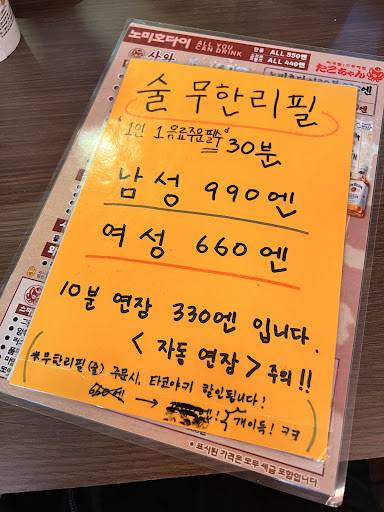 노미호다이 ALL YOU CAN DRINK
ALL 550엔
ALL 440엔
たこちゃん
사와
술 무한리필
1인 1음료주문 필수 30분
남성 990엔
여성 660엔
10분 연장 330엔 입니다.
< 자동 연장 > 주의!!
※무한리필(술) 주문시, 타코야키 할인됩니다!
660엔 → 엔! 개이득! ㅋㅋ
* 표시된 가격은 모두 세금 포함입니다